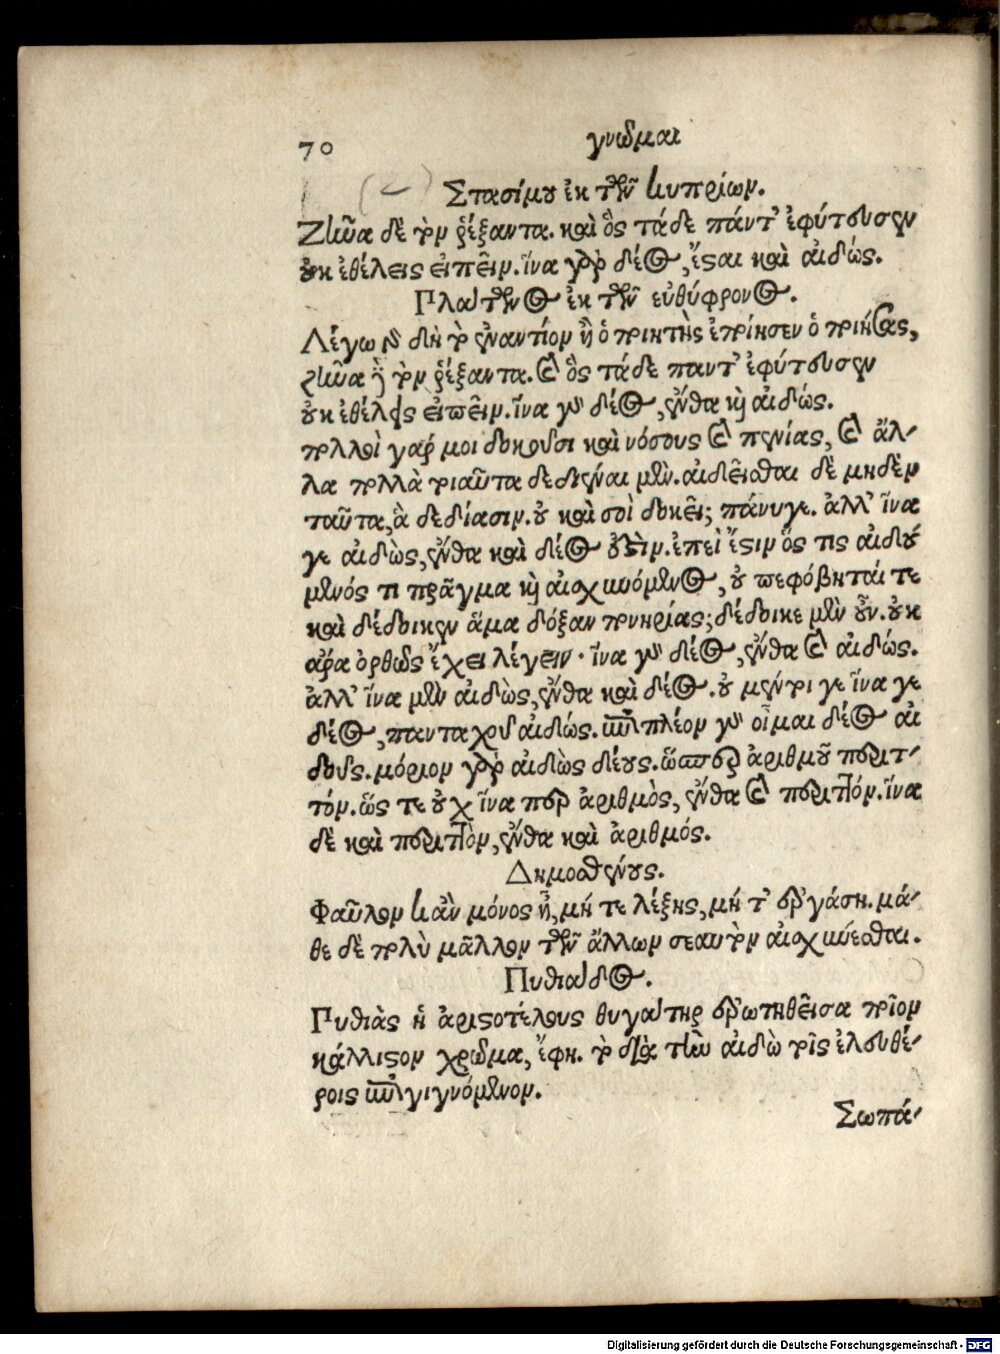 70 γνῶμαι
Στασίμου ἐκ τῶν κυπρίων.
Ζῆνα δὲ τὸν ῥέξαντα. καὶ ὃς τάδε πάντ' ἐφύτευσεν
οὐκ ἐθέλεις εἰπεῖν. ἵνα γὰρ δέος, ἔςαι καὶ αἰδώς.
Πλάτωνος ἐκ τῶν εὐθύφρονος.
Λέγω γὰρ δὴ τὸ ἐναντίον ἢ ὁ ποιητὴς ἐποίησεν ὁ ποιήσας,
ζῆνα δὲ τὸν ῥέξαντα. καὶ ὃς τάδε παντ' ἐφύτευσεν
οὐκ ἐθέλεις εἰπεῖν. ἵνα γὰρ δέος, ἔνθα καὶ αἰδώς.
πολλοὶ γάρ μοι δοκοῦσι καὶ νόσους καὶ πενίας, καὶ ἄλ-
λα πολλὰ τοιαῦτα δεδιέναι μὲν. αἰδεῖσθαι δὲ μηδὲν
ταῦτα, ἃ δεδίασιν. οὐ καὶ σοὶ δοκεῖ; πάνυγε. ἀλλ' ἵνα
γε αἰδὼς, ἔνθα καὶ δέος ἐστὶν. ἐπεὶ ἔςιν ὅς τις αἰδού
μενός τι πρᾶγμα καὶ αἰσχυνόμενος, οὐ πεφόβηταί τε
καὶ δέδοικεν ἅμα δόξαν πονηρίας; δέδοικε μὲν οὖν. οὐκ
ἄρα ὀρθῶς ἔχει λέγειν. ἵνα γὰρ δέος, ἔνθα καὶ αἰδώς.
ἀλλ' ἵνα μὲν αἰδὼς, ἔνθα καὶ δέος. οὐ μέντοι γε ἵνα γε
δέος, πανταχοῦ αἰδώς. ἐπὶ πλέον γὰρ οἶμαι δέος αἰ
δοῦς. μόριον γὰρ αἰδὼς δέους. ὥσπερ ἀριθμοῦ περιτ-
τόν. ὥς τε οὐχ ἵνα περ ἀριθμὸς, ἔνθα καὶ περιττόν. ἵνα
δὲ καὶ περιττὸν, ἔνθα καὶ ἀριθμός.
Δημοσθένους.
Φαῦλον κἂν μόνος ᾖ, μή τε λέξῃς, μή τ' ἐργάσῃ. μά-
θε δὲ πολὺ μᾶλλον τῶν ἄλλων σεαυτὸν αἰσχύνεσθαι.
Πυθιάδος.
Πυθιὰς ἡ ἀριςοτέλους θυγάτηρ ἐρωτηθεῖσα ποῖον
κάλλιςον χρῶμα, ἔφη. τὸ διὰ τὴν αἰδῶ τοῖς ἐλευθέ-
ροις ἐπιγιγνόμενον.
Σωπά-
Digitalisierung gefördert durch die Deutsche Forschungsgemeinschaft - DFG